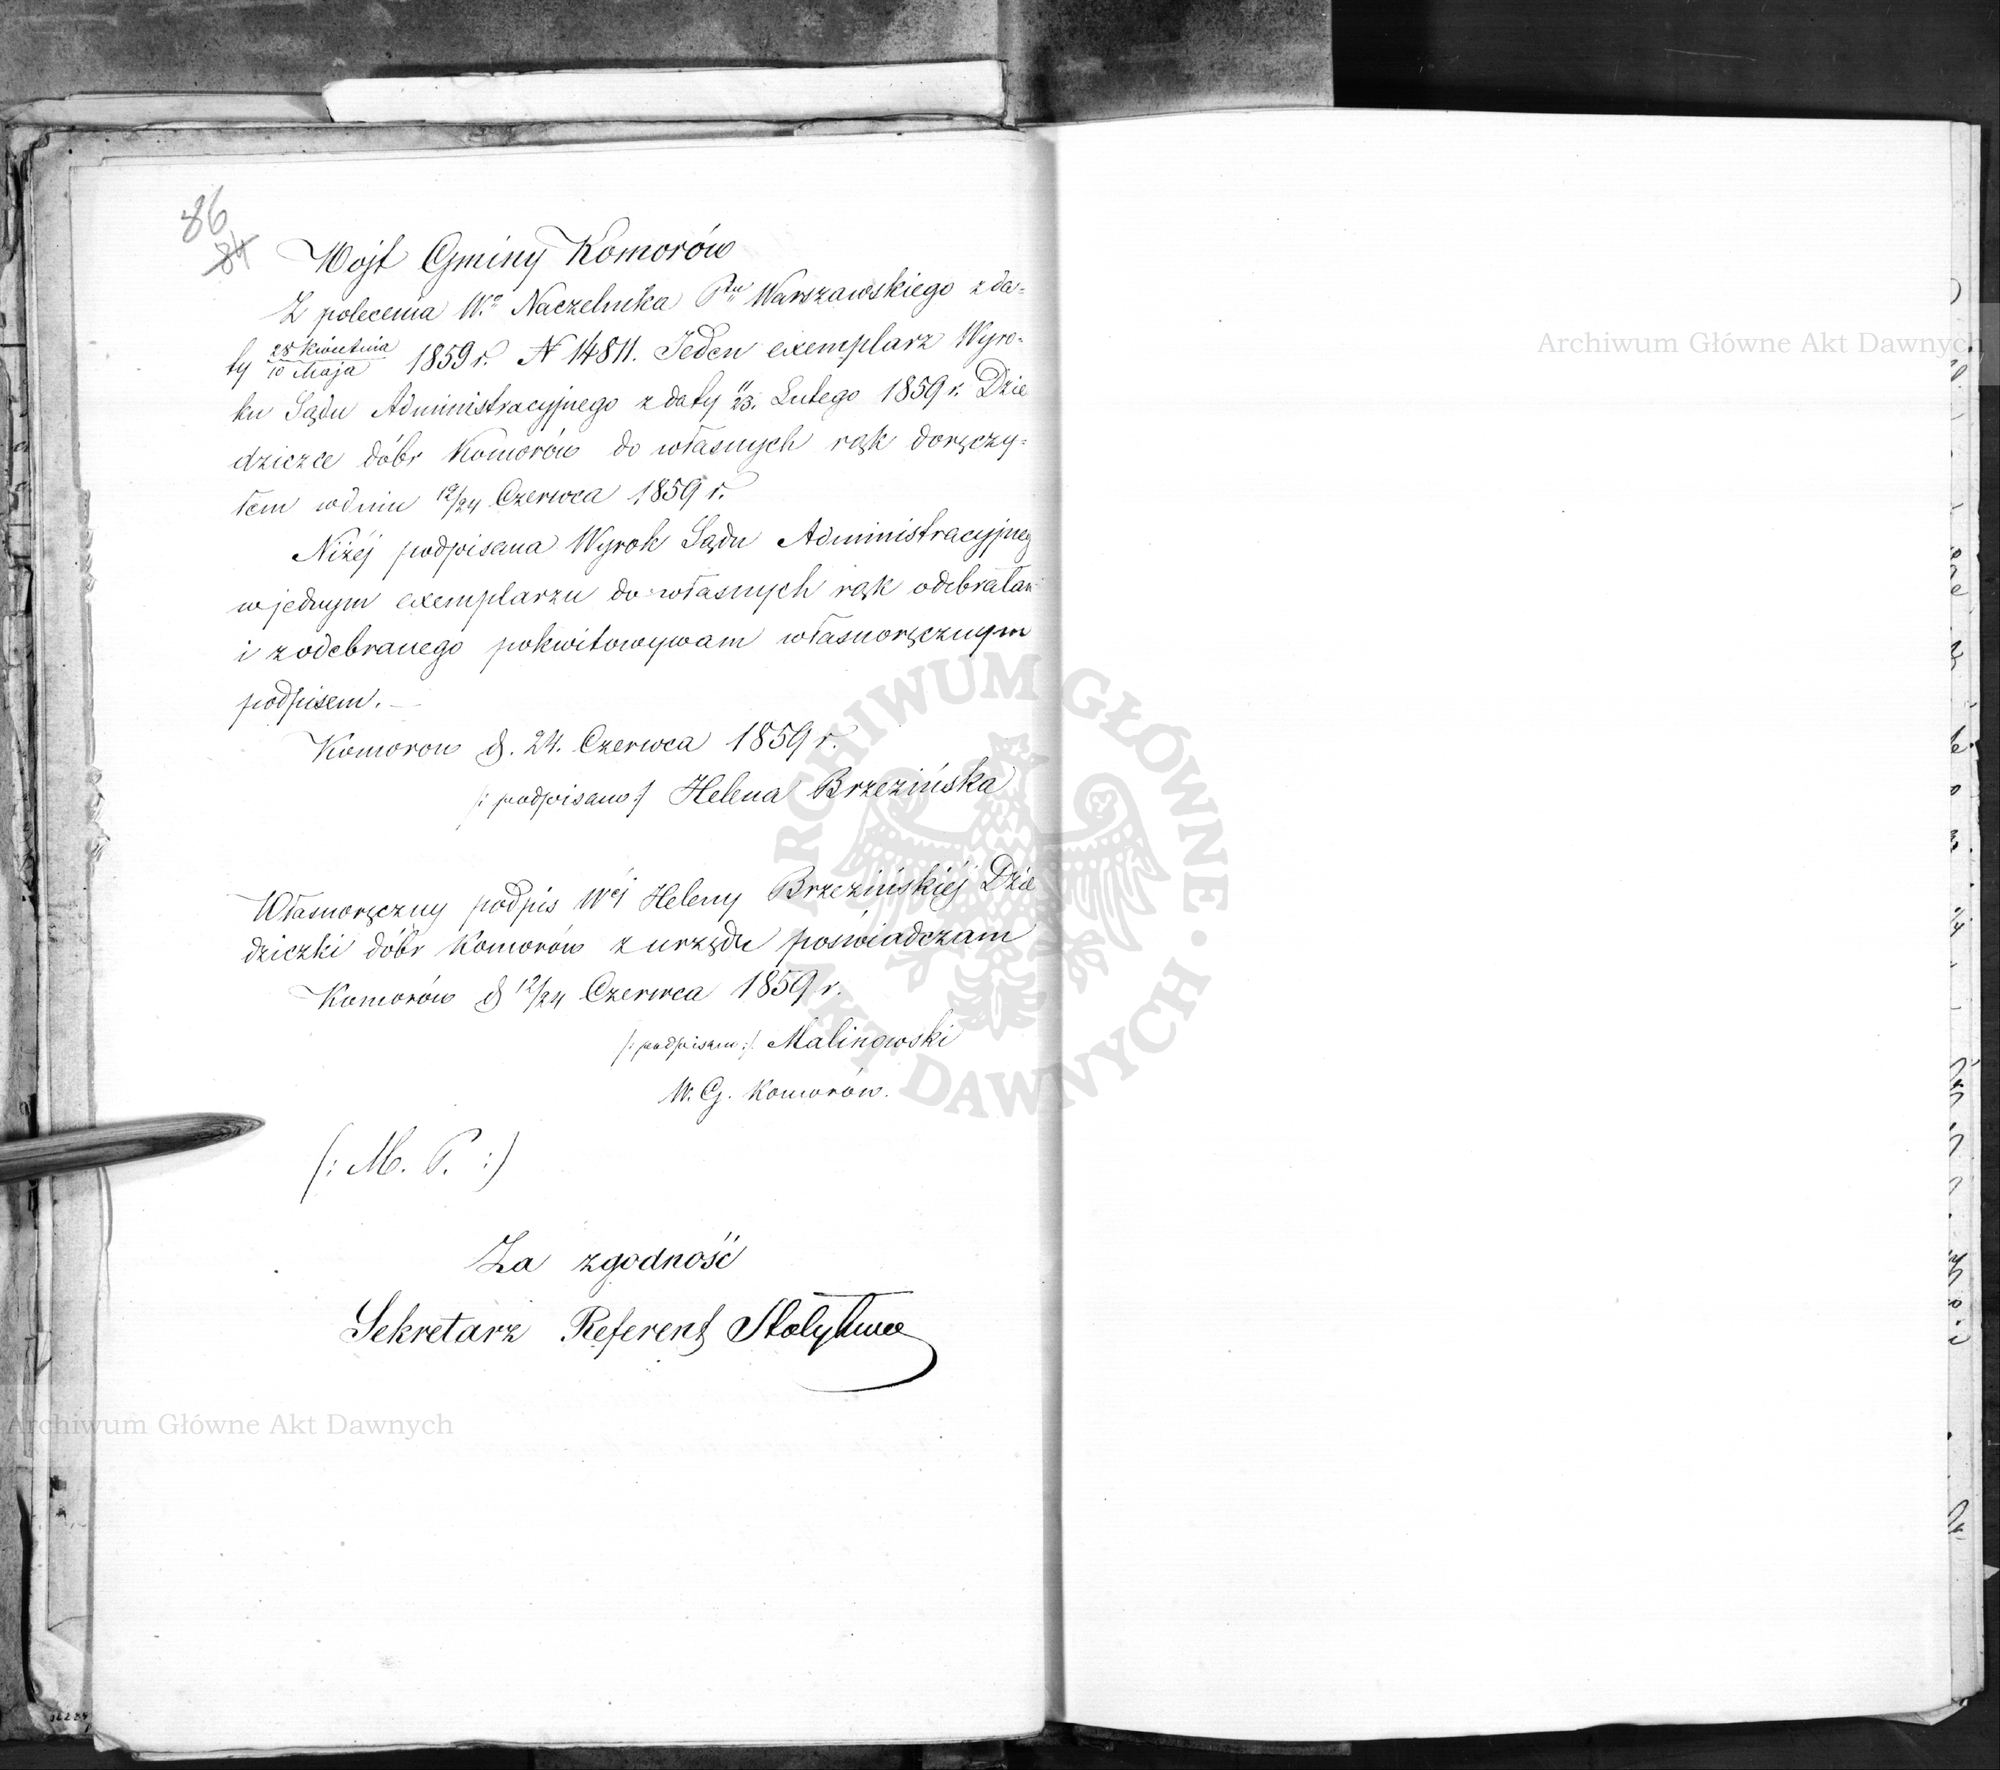 86
84
Wojt Gminy Komorów
Z polecenia Wo Naczelnika Ptu Warszawskiego z da=
ty 28 Kwietnia / 10 Maja 1859 r. N 14811. Jeden exemplarz Wyro=
ku Sądu Administracyjnego z daty 11/23. Lutego 1859 r. Dzie
dziczce dóbr Komorów do własnych rąk doręczy=
łem w dniu 12/24 Czerwca 1859 r.
Niżéj podpisana Wyrok Sądu Administracyjneg
w jednym exemplarzu do własnych rąk odebrałam
i z odebranego pokwitowywam własnoręcznym
podpisem. —
Komorow d. 24. Czerwca 1859 r.
/: podpisano :/ Helena Brzezińska
Własnoręczny podpis Wéj Heleny Brzezińskiéj Dzie
dziczki dóbr Komorów z urzędu poświadczam
Komorów d 12/24 Czerwca 1859 r.
/: podpisano :/. Malinowski
W. G. Komorów.
(: M. P. :)
Za zgodność
Sekretarz Referent
Archiwum Główne Akt Dawnych
Archiwum Główne Akt Dawnych
ARCHIWUM GŁÓWNE AKT DAWNYCH